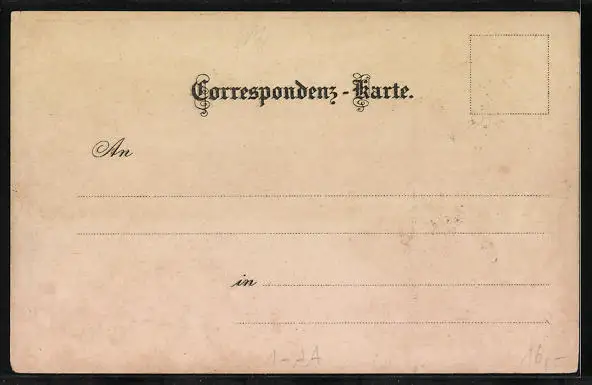 Correspondenz-Karte.
An
in
16,-